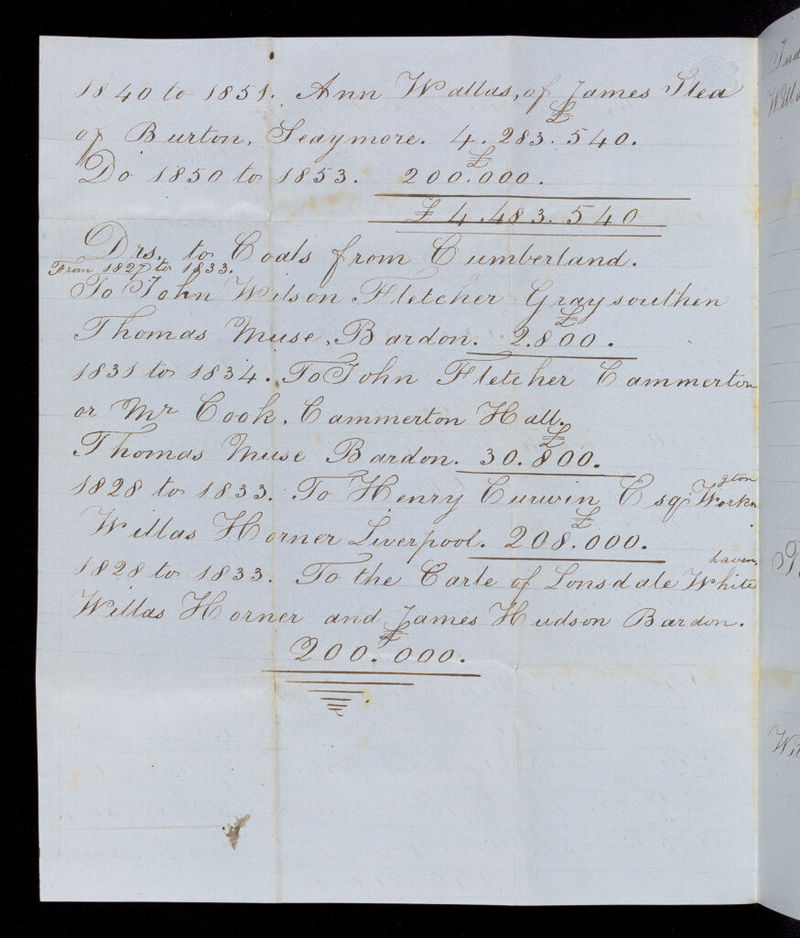 1840 to 1851. Ann Wallas, of James Slea
£
of Burton, Seaymore. 4.283.540.
£
Do 1850 to 1853. 200.000.
£ 4.483.540
Drs. to Coals from Cumberland.
From 1827 to 1833.
To John Wilson Fletcher Graysouthen
£
Thomas Muse, Bardon. 2.800.
1831 to 1834. To John Fletcher Cammerton
or Mr Cook, Cammerton Hall.
£
Thomas Muse Bardon. 30.800.
gton
1828 to 1833. To Henry Curwin Esq. Workn
£
Willas Horner Liverpool. 208.000.
haven,
1828 to 1833. To the Earle of Lonsdale White
Willas Horner and James Hudson Bardon.
£
200.000.